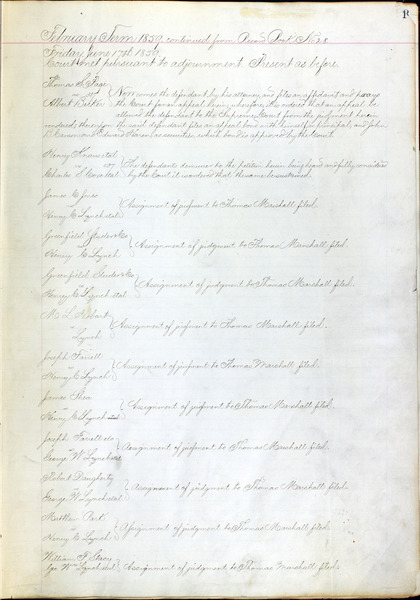 February Term 1859 continued from Record Book No 28
Friday June 17th 1859
Court met pursuant to adjournment Present as before
Thomas S. Page
Albert Barker
Now comes the defendant by his attorney and files an affidavit and prays
the Court for an appeal herein wherefore it is ordered that an appeal be
allowed the defendant to the Supreme Court from the judgment herein
rendered, thereupon the said defendant files an appeal bond with himself as principal, and John
as securities which bond is approved by the Court
Henry
Charles
The defendants demurrer to the petition herein being heard and fully considered
by the Court it is ordered that the same be sustained
James C
vs
Henry C Lynch et al
Assignment of judgment to Thomas Marshall filed.
Greenfield Studer & Co
vs
Henry C Lynch
Assignment of judgment to Thomas Marshall filed.
Greenfield Studer & Co
vs
Henry C Lynch et al
Assignment of judgment to Thomas Marshall filed.
M. L.
vs
Lynch
Assignment of judgment to Thomas Marshall filed.
Joseph Farrell
vs
Henry C Lynch
Assignment of judgment to Thomas Marshall filed.
James Shea
vs
Henry C Lynch et al
Assignment of judgment to Thomas Marshall filed.
Joseph Farrell
vs
George W Lynch et al
Assignment of judgment to Thomas Marshall filed.
Robert Daugherty
vs
George W Lynch et al
Assignment of judgment to Thomas Marshall filed.
Matthew Park
vs
Henry C Lynch
Assignment of judgment to Thomas Marshall filed.
William F Stacy
Geo W Lynch et al
Assignment of judgment to Thomas Marshall filed.